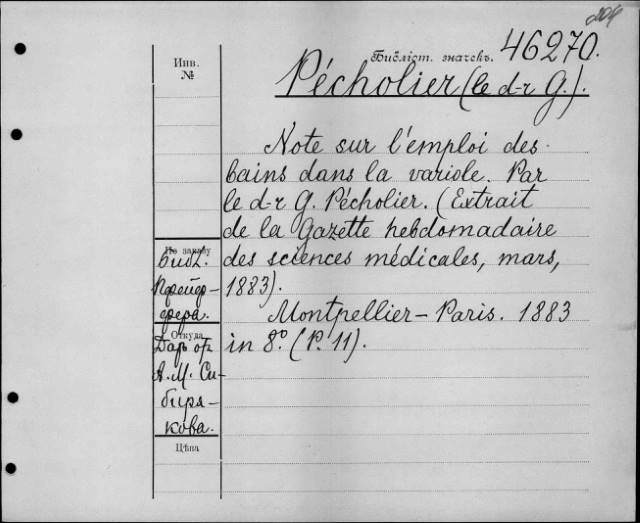 Библіот. значекъ. 46270.
Инв.
№
Pécholier (le d-r G.).
Note sur l'emploi des
bains dans la variole. Par
le d-r G. Pécholier. (Extrait
de la Gazette hebdomadaire
des sciences médicales, mars,
1883).
Montpellier – Paris. 1883
in 8.º (P. 11).
По заказу
Библ.
Пфейф-
фера.
Откуда
Даръ отъ
А. М. Си-
биря-
кова.
Цѣна